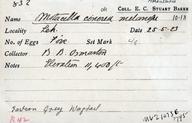 832
Coll. E. C. Stuart Baker
Name Motacilla cinerea melanope 10-18
Locality Leh Date 25-5-03
No. of Eggs Five Set Mark
Collector B. B. Osmaston
Notes Elevation 11,400 ft
Eastern Grey Wagtail